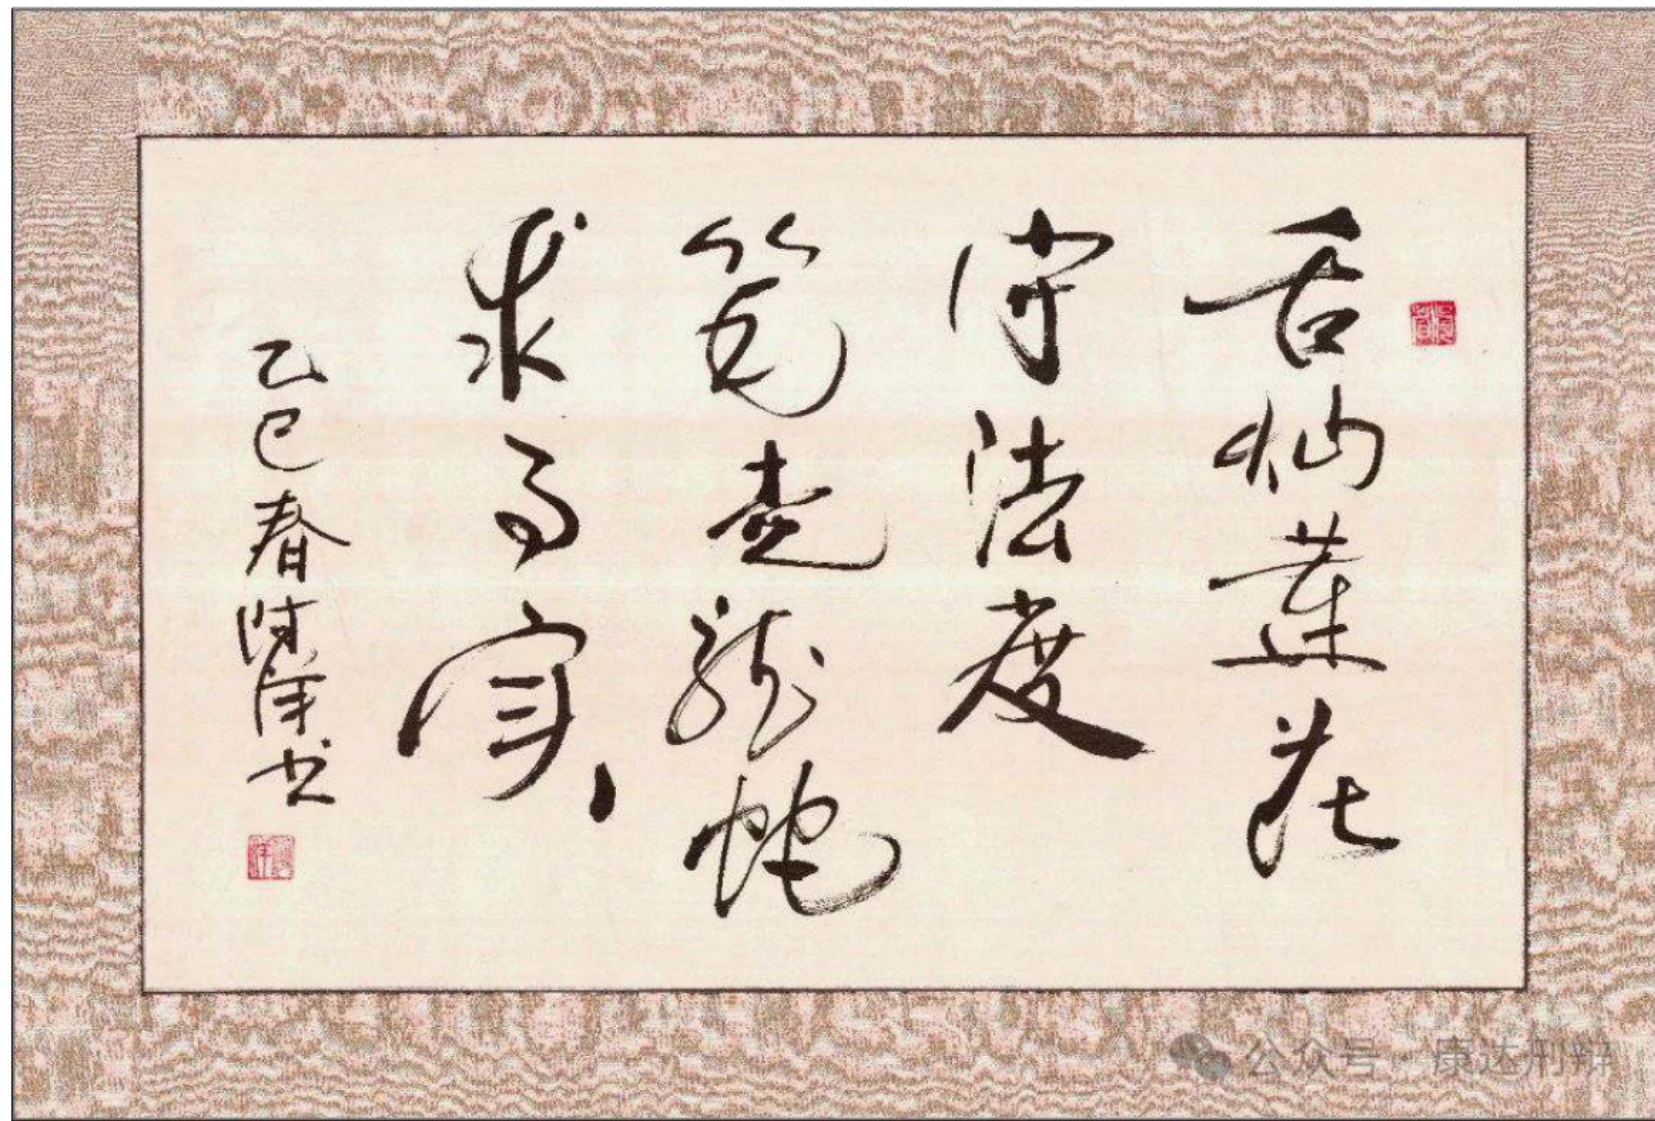 舌灿莲花
守法度
笔走龙蛇
求事实
乙巳春 书
公众号·康达刑辩